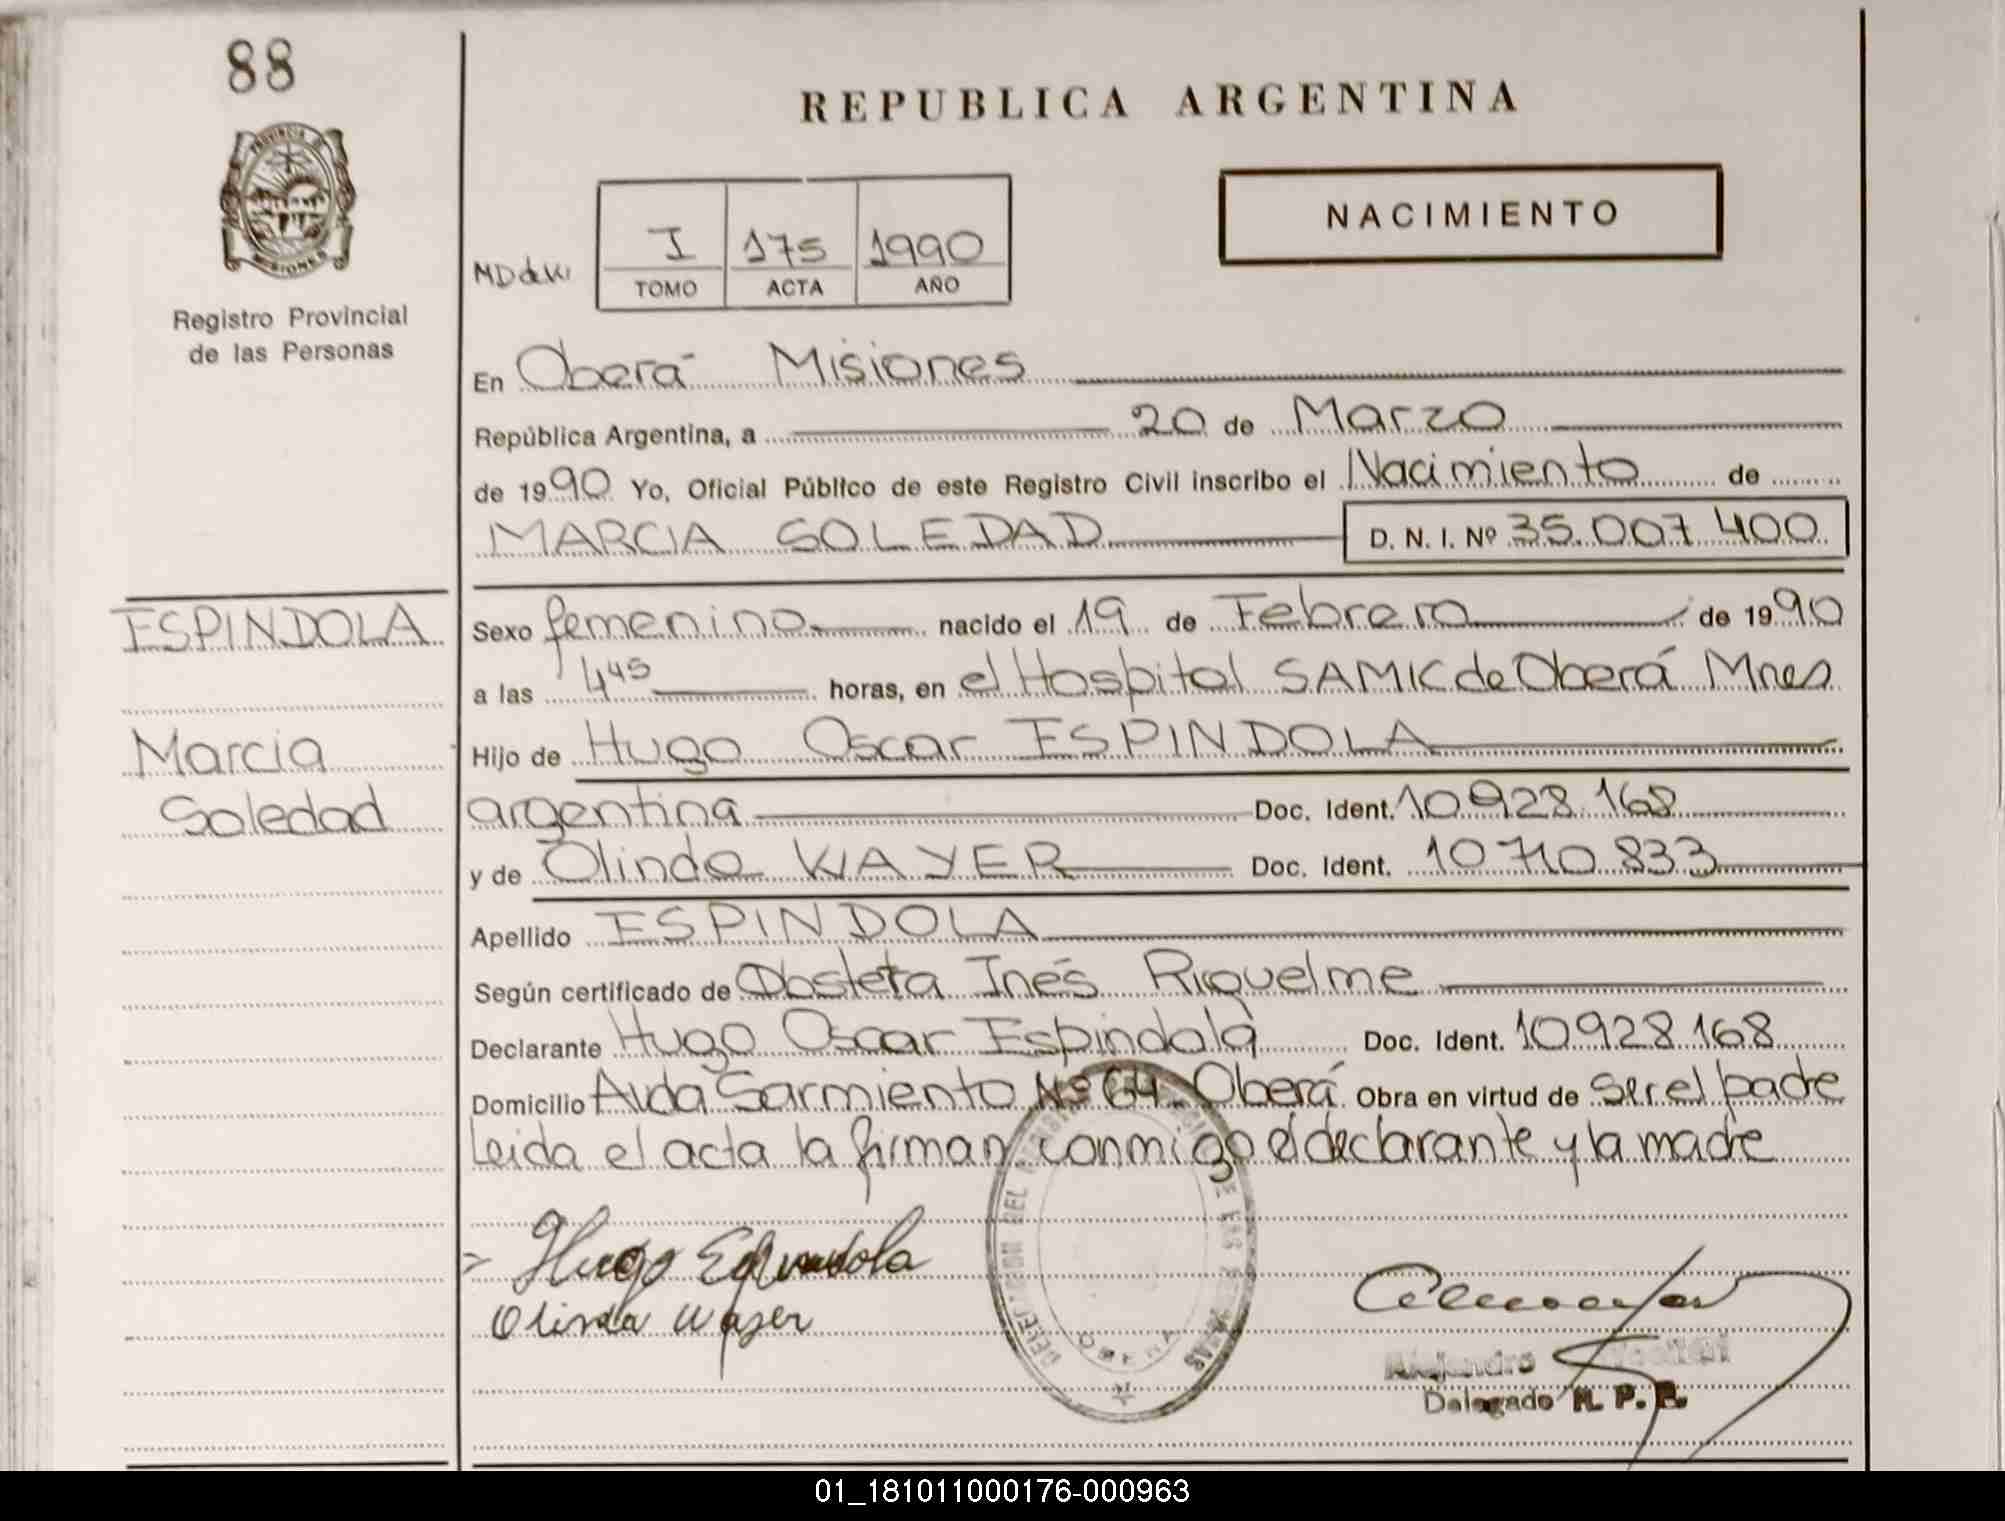 88
REPUBLICA ARGENTINA
PROVINCIA DE
MISIONES
Registro Provincial
de las Personas
NACIMIENTO
I 175 1990
TOMO ACTA AÑO
En Oberá Misiones
República Argentina, a 20 de Marzo
de 1990 Yo, Oficial Público de este Registro Civil inscribo el Nacimiento de
MARCIA SOLEDAD D. N. I. Nº 35.007.400
ESPINDOLA
Marcia
Soledad
Sexo femenino nacido el 19 de Febrero de 1990
a las 4 45 horas, en el Hospital SAMIC de Oberá Mnes
Hijo de Hugo Oscar ESPINDOLA
argentina Doc. Ident. 10.928.168
y de Olinda WAYER Doc. Ident. 10.710.833
Apellido ESPINDOLA
Según certificado de Obsteta Inés Riquelme
Declarante Hugo Oscar Espindola Doc. Ident. 10928168
Domicilio Avda Sarmiento Nº 64 Oberá Obra en virtud de ser el padre
Leida el acta la firman conmigo el declarante y la madre
Hugo Espindola
Olinda Wayer
DELEGACION DEL DE LAS PERSONAS
Alejandro
Delegado R. P. P.
01_181011000176-000963